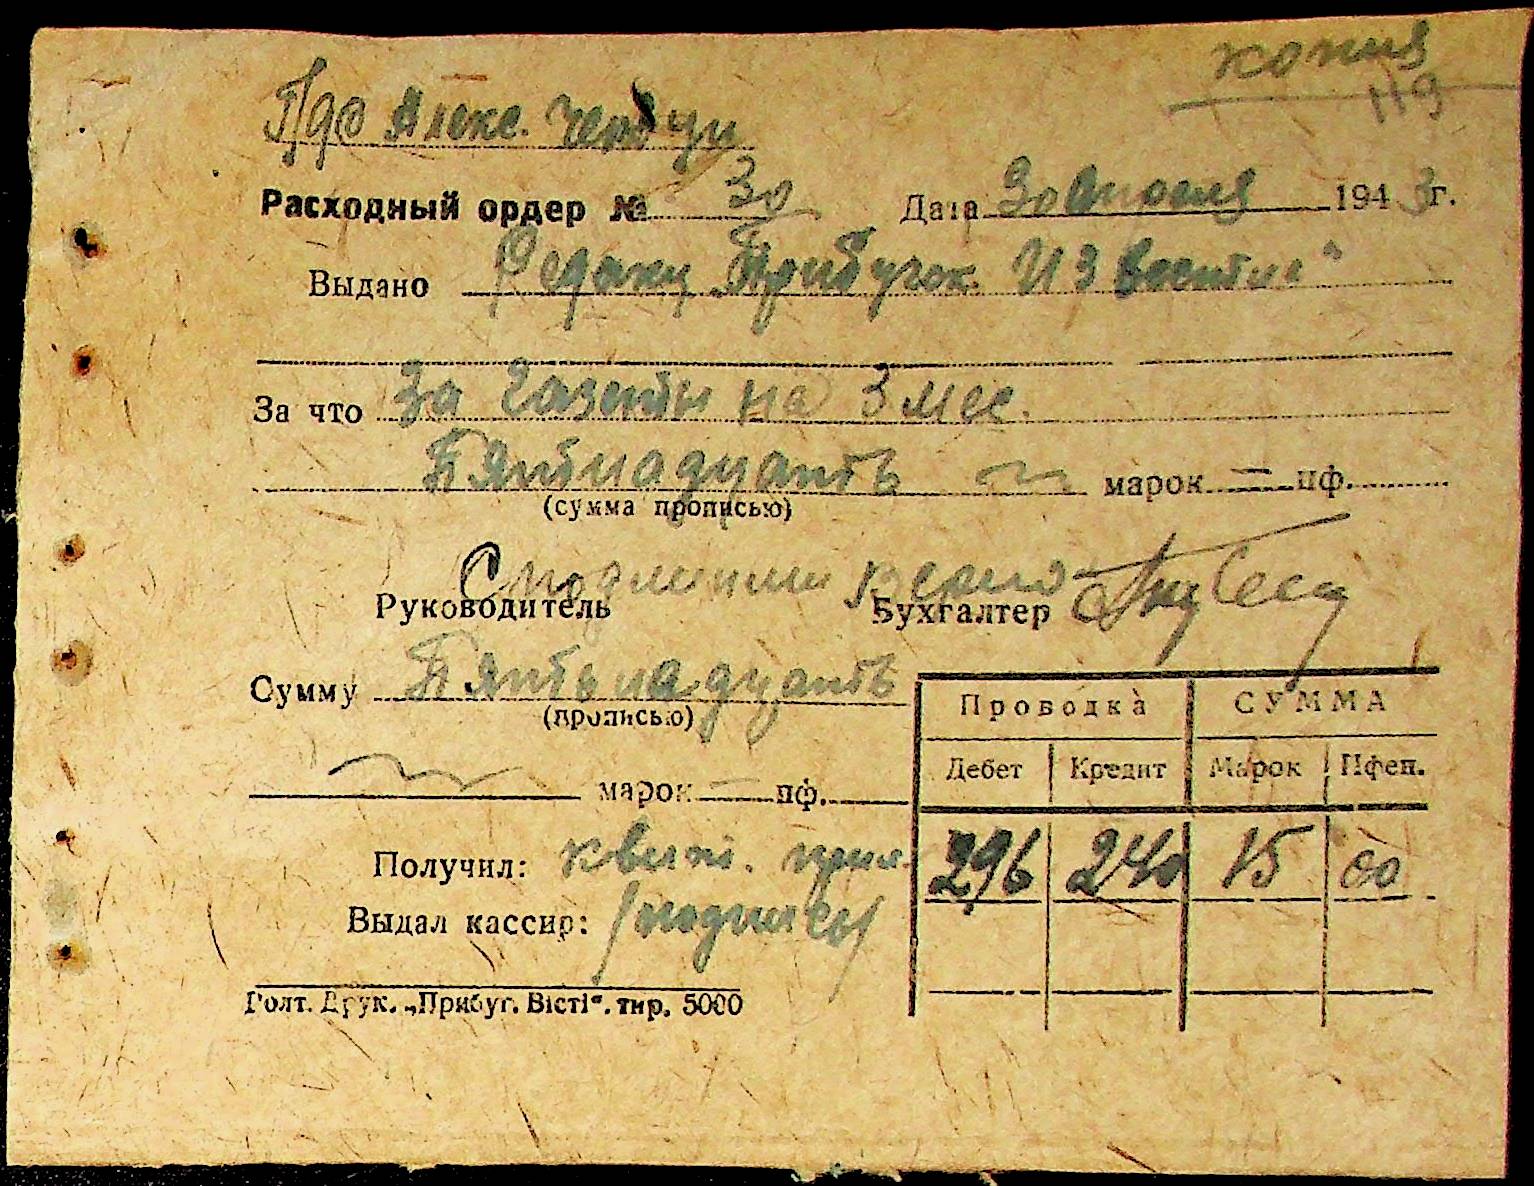 копия
119
Алекс.
Расходный ордер № 30 Дата 30 апреля 1943 г.
Выдано Редакц. „Прибужск. Известие“
За что За газеты на 3 мес.
Пятнадцать марок = пф.
(сумма прописью)
С подлинным верно
Руководитель Бухгалтер
Сумму Пятьнадцать
(прописью)
марок — пф.
Проводка СУММА
Дебет Кредит Марок Пфен.
296 240 15 00
Получил: квит. прил.
Выдал кассир: /подписы/
Голт. Друк. „Прибуг. Вісті“. тир. 5000